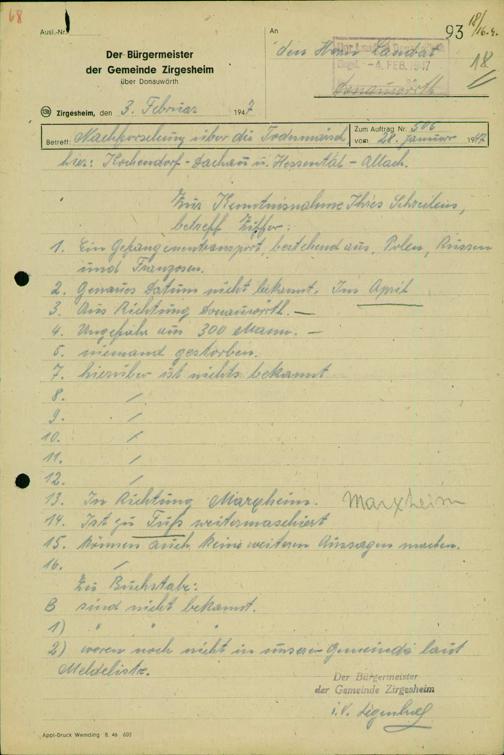 68
Ausl.-Nr.
An
93 18/16.4.
den Herrn Landrat
18
Der Bürgermeister
der Gemeinde Zirgesheim
über Donauwörth
4. FEB. 1947
Donauwörth
Zirgesheim, den 3. Februar 1947
Betreff: Nachforschung über die Todesmärsche
Zum Auftrag Nr. 506
vom 28. Januar 1947
hier: Kochendorf-Dachau u. Hessental-Allach.
Zur Kenntnisnahme Ihres Schreibens,
betreff Ziffer:
1. Ein Gefangenentransport, bestehend aus, Polen, Russen
und Franzosen.
2. Genaues Datum nicht bekannt. Im April
3. Aus Richtung Donauwörth. —
4. Ungefähr aus 300 Mann. —
5. niemand gestorben.
7. hierüber ist nichts bekannt
8. /
9. /
10. /
11. /
12. /
13. In Richtung Marxheim. Marxheim
14. Ist zu Fuß weitermaschiert
15. können auch keine weiteren Aussagen machen.
16. /
Zu Buchstabe:
B sind nicht bekannt.
1) " " "
2) waren noch nicht in unserer Gemeinde laut
Meldeliste.
Der Bürgermeister
der Gemeinde Zirgesheim
i.V.
Appl-Druck Wemding 8. 46 600